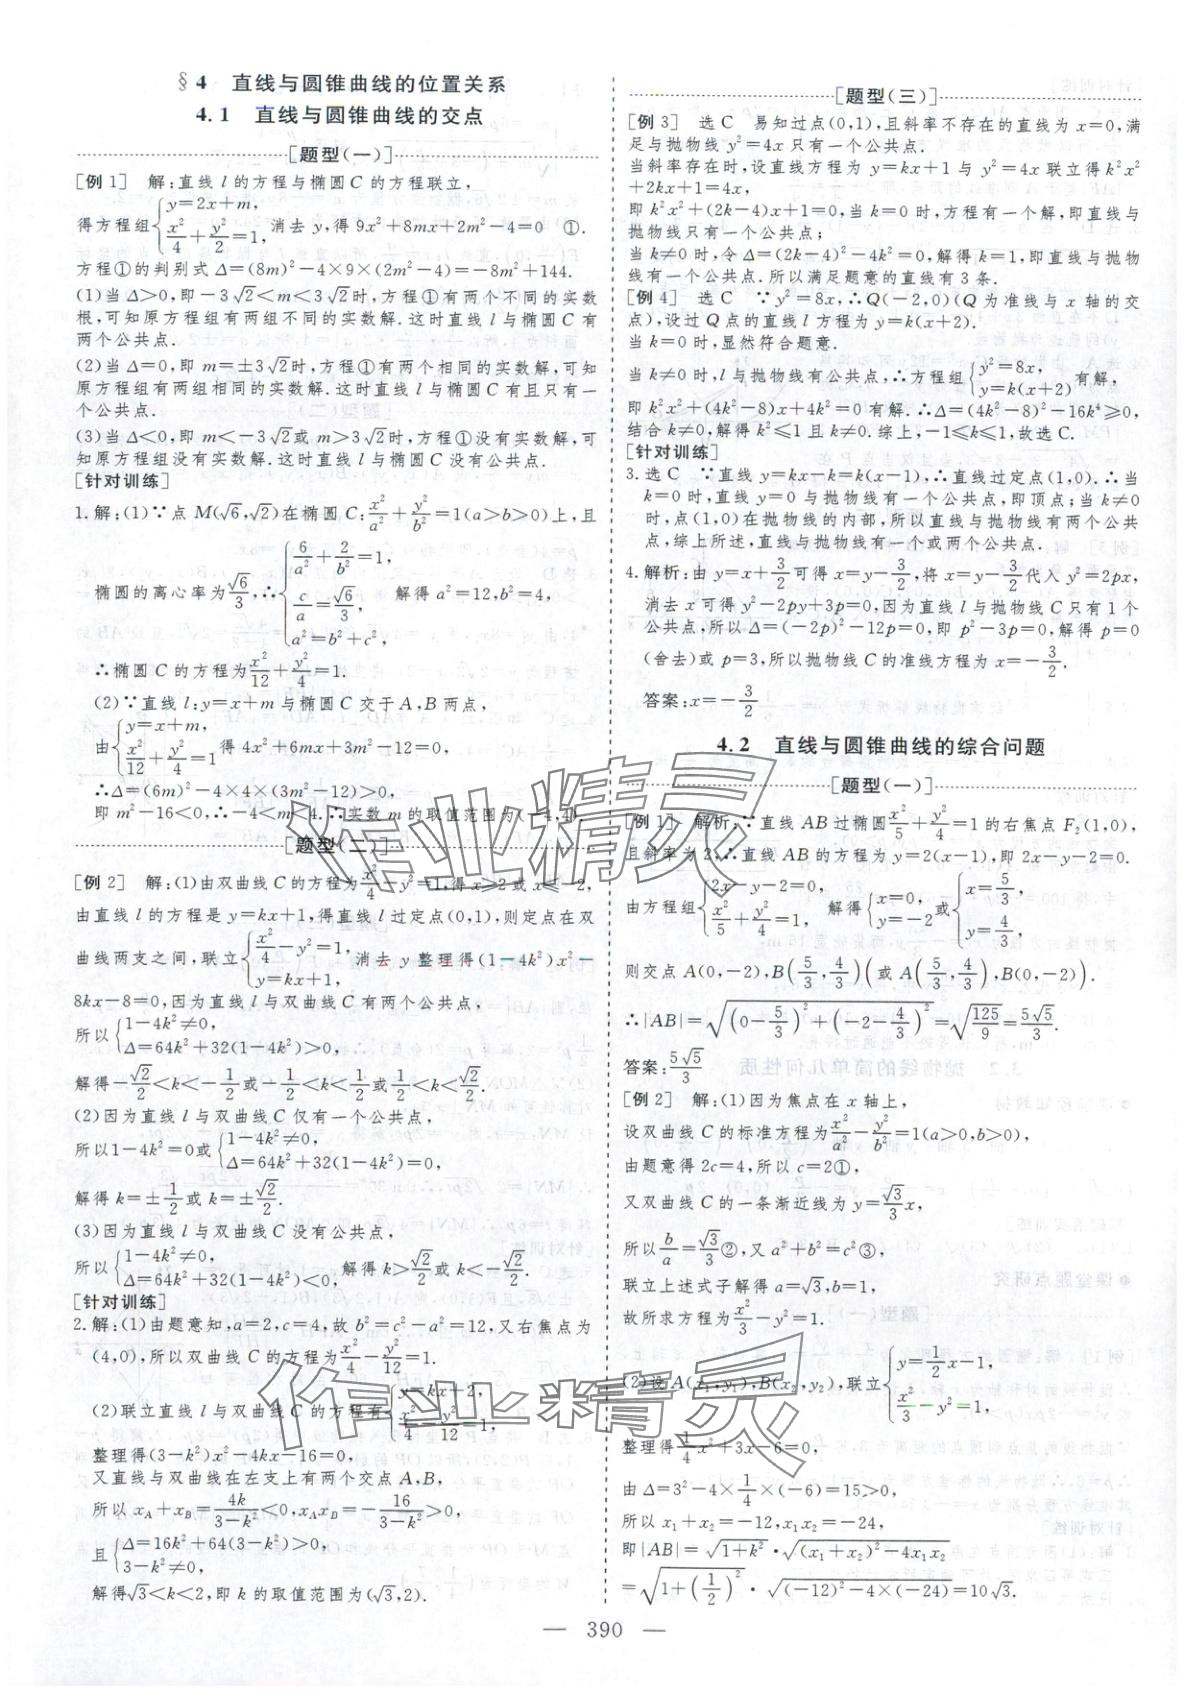 §4 直线与圆锥曲线的位置关系
4.1 直线与圆锥曲线的交点
[题型(一)]
[例1] 解:直线 l 的方程与椭圆 C 的方程联立,
得方程组{y=2x+m, x²/4+y²/2=1, 消去 y,得 9x²+8mx+2m²-4=0 ①.
方程①的判别式 Δ=(8m)²-4×9×(2m²-4)=-8m²+144.
(1)当 Δ>0,即-3√2<m<3√2时,方程①有两个不同的实数
根,可知原方程组有两组不同的实数解.这时直线 l 与椭圆 C 有
两个公共点.
(2)当 Δ=0,即 m=±3√2时,方程①有两个相同的实数解,可知
原方程组有两组相同的实数解.这时直线 l 与椭圆 C 有且只有一
个公共点.
(3)当 Δ<0,即 m<-3√2或 m>3√2时,方程①没有实数解,可
知原方程组没有实数解.这时直线 l 与椭圆 C 没有公共点.
[针对训练]
1.解:(1)∵点 M(√6,√2)在椭圆 C:x²/a²+y²/b²=1(a>b>0)上,且
椭圆的离心率为√6/3,∴{6/a²+2/b²=1, c/a=√6/3, a²=b²+c², 解得 a²=12,b²=4,
∴椭圆 C 的方程为x²/12+y²/4=1.
(2)∵直线 l:y=x+m 与椭圆 C 交于 A,B 两点,
由{y=x+m, x²/12+y²/4=1 得 4x²+6mx+3m²-12=0,
∴Δ=(6m)²-4×4×(3m²-12)>0,
即 m²-16<0,∴-4<m<4.∴实数 m 的取值范围为(-4,4).
[题型(二)]
[例2] 解:(1)由双曲线 C 的方程为x²/4-y²=1,得 x≥2或 x≤-2,
由直线 l 的方程是 y=kx+1,得直线 l 过定点(0,1),则定点在双
曲线两支之间,联立{x²/4-y²=1, y=kx+1, 消去 y 整理得(1-4k²)x²-
8kx-8=0,因为直线 l 与双曲线 C 有两个公共点,
所以{1-4k²≠0, Δ=64k²+32(1-4k²)>0,
解得-√2/2<k<-1/2或-1/2<k<1/2或1/2<k<√2/2.
(2)因为直线 l 与双曲线 C 仅有一个公共点,
所以1-4k²=0或{1-4k²≠0, Δ=64k²+32(1-4k²)=0,
解得 k=±1/2或 k=±√2/2.
(3)因为直线 l 与双曲线 C 没有公共点,
所以{1-4k²≠0, Δ=64k²+32(1-4k²)<0, 解得 k>√2/2或 k<-√2/2.
[针对训练]
2.解:(1)由题意知,a=2,c=4,故 b²=c²-a²=12,又右焦点为
(4,0),所以双曲线 C 的方程为x²/4-y²/12=1.
(2)联立直线 l 与双曲线 C 的方程有{y=kx+2, x²/4-y²/12=1,
整理得(3-k²)x²-4kx-16=0.
又直线与双曲线在左支上有两个交点 A,B,
所以 x_A+x_B=4k/(3-k²)<0,x_Ax_B=-16/(3-k²)>0,
且{Δ=16k²+64(3-k²)>0, 3-k²≠0,
解得√3<k<2,即 k 的取值范围为(√3,2).
[题型(三)]
[例3] 选 C 易知过点(0,1),且斜率不存在的直线为 x=0,满
足与抛物线 y²=4x 只有一个公共点.
当斜率存在时,设直线方程为 y=kx+1 与 y²=4x 联立得 k²x²
+2kx+1=4x,
即 k²x²+(2k-4)x+1=0,当 k=0时,方程有一个解,即直线与
抛物线只有一个公共点;
当 k≠0时,令 Δ=(2k-4)²-4k²=0,解得 k=1,即直线与抛物
线有一个公共点.所以满足题意的直线有3条.
[例4] 选 C ∵y²=8x,∴Q(-2,0)(Q 为准线与 x 轴的交
点),设过 Q 点的直线 l 方程为 y=k(x+2).
当 k=0时,显然符合题意.
当 k≠0时,l 与抛物线有公共点,∴方程组{y²=8x, y=k(x+2) 有解,
即 k²x²+(4k²-8)x+4k²=0 有解.∴Δ=(4k²-8)²-16k⁴≥0,
结合 k≠0,解得 k²≤1且 k≠0.综上,-1≤k≤1,故选 C.
[针对训练]
3.选 C ∵直线 y=kx-k=k(x-1),∴直线过定点(1,0).∴当
k=0时,直线与抛物线有一个公共点,即顶点;当 k≠0
时,点(1,0)在抛物线的内部,所以直线与抛物线有两个公共
点,综上所述,直线与抛物线有一个或两个公共点.
4.解析:由 y=x+3/2可得 x=y-3/2,将 x=y-3/2代入 y²=2px,
消去 x 可得 y²-2py+3p=0,因为直线 l 与抛物线 C 只有1个
公共点,所以 Δ=(-2p)²-12p=0,即 p²-3p=0,解得 p=0
(舍去)或 p=3,所以抛物线 C 的准线方程为 x=-3/2.
答案:x=-3/2
4.2 直线与圆锥曲线的综合问题
[题型(一)]
[例1] 解析:∵直线 AB 过椭圆x²/5+y²/4=1的右焦点 F₂(1,0),
且斜率为2,∴直线 AB 的方程为 y=2(x-1),即2x-y-2=0.
由方程组{2x-y-2=0, x²/5+y²/4=1, 解得{x=0, y=-2 或{x=5/3, y=4/3,
则交点 A(0,-2),B(5/3,4/3)(或 A(5/3,4/3),B(0,-2)).
∴|AB|=√((0-5/3)²+(-2-4/3)²)=√(125/9)=5√5/3.
答案:5√5/3
[例2] 解:(1)因为焦点在 x 轴上,
设双曲线 C 的标准方程为x²/a²-y²/b²=1(a>0,b>0),
由题意得2c=4,所以 c=2①,
又双曲线 C 的一条渐近线为 y=√3/3x,
所以b/a=√3/3②,又 a²+b²=c²③,
联立上述式子解得 a=√3,b=1,
故所求方程为x²/3-y²=1.
(2)设 A(x₁,y₁),B(x₂,y₂),联立{y=1/2x-1, x²/3-y²=1,
整理得1/4x²+3x-6=0,
由 Δ=3²-4×1/4×(-6)=15>0,
所以 x₁+x₂=-12,x₁x₂=-24,
即|AB|=√(1+k²)·√((x₁+x₂)²-4x₁x₂)
=√(1+(1/2)²)·√((-12)²-4×(-24))=10√3.
— 390 —
作业精灵
作业精灵